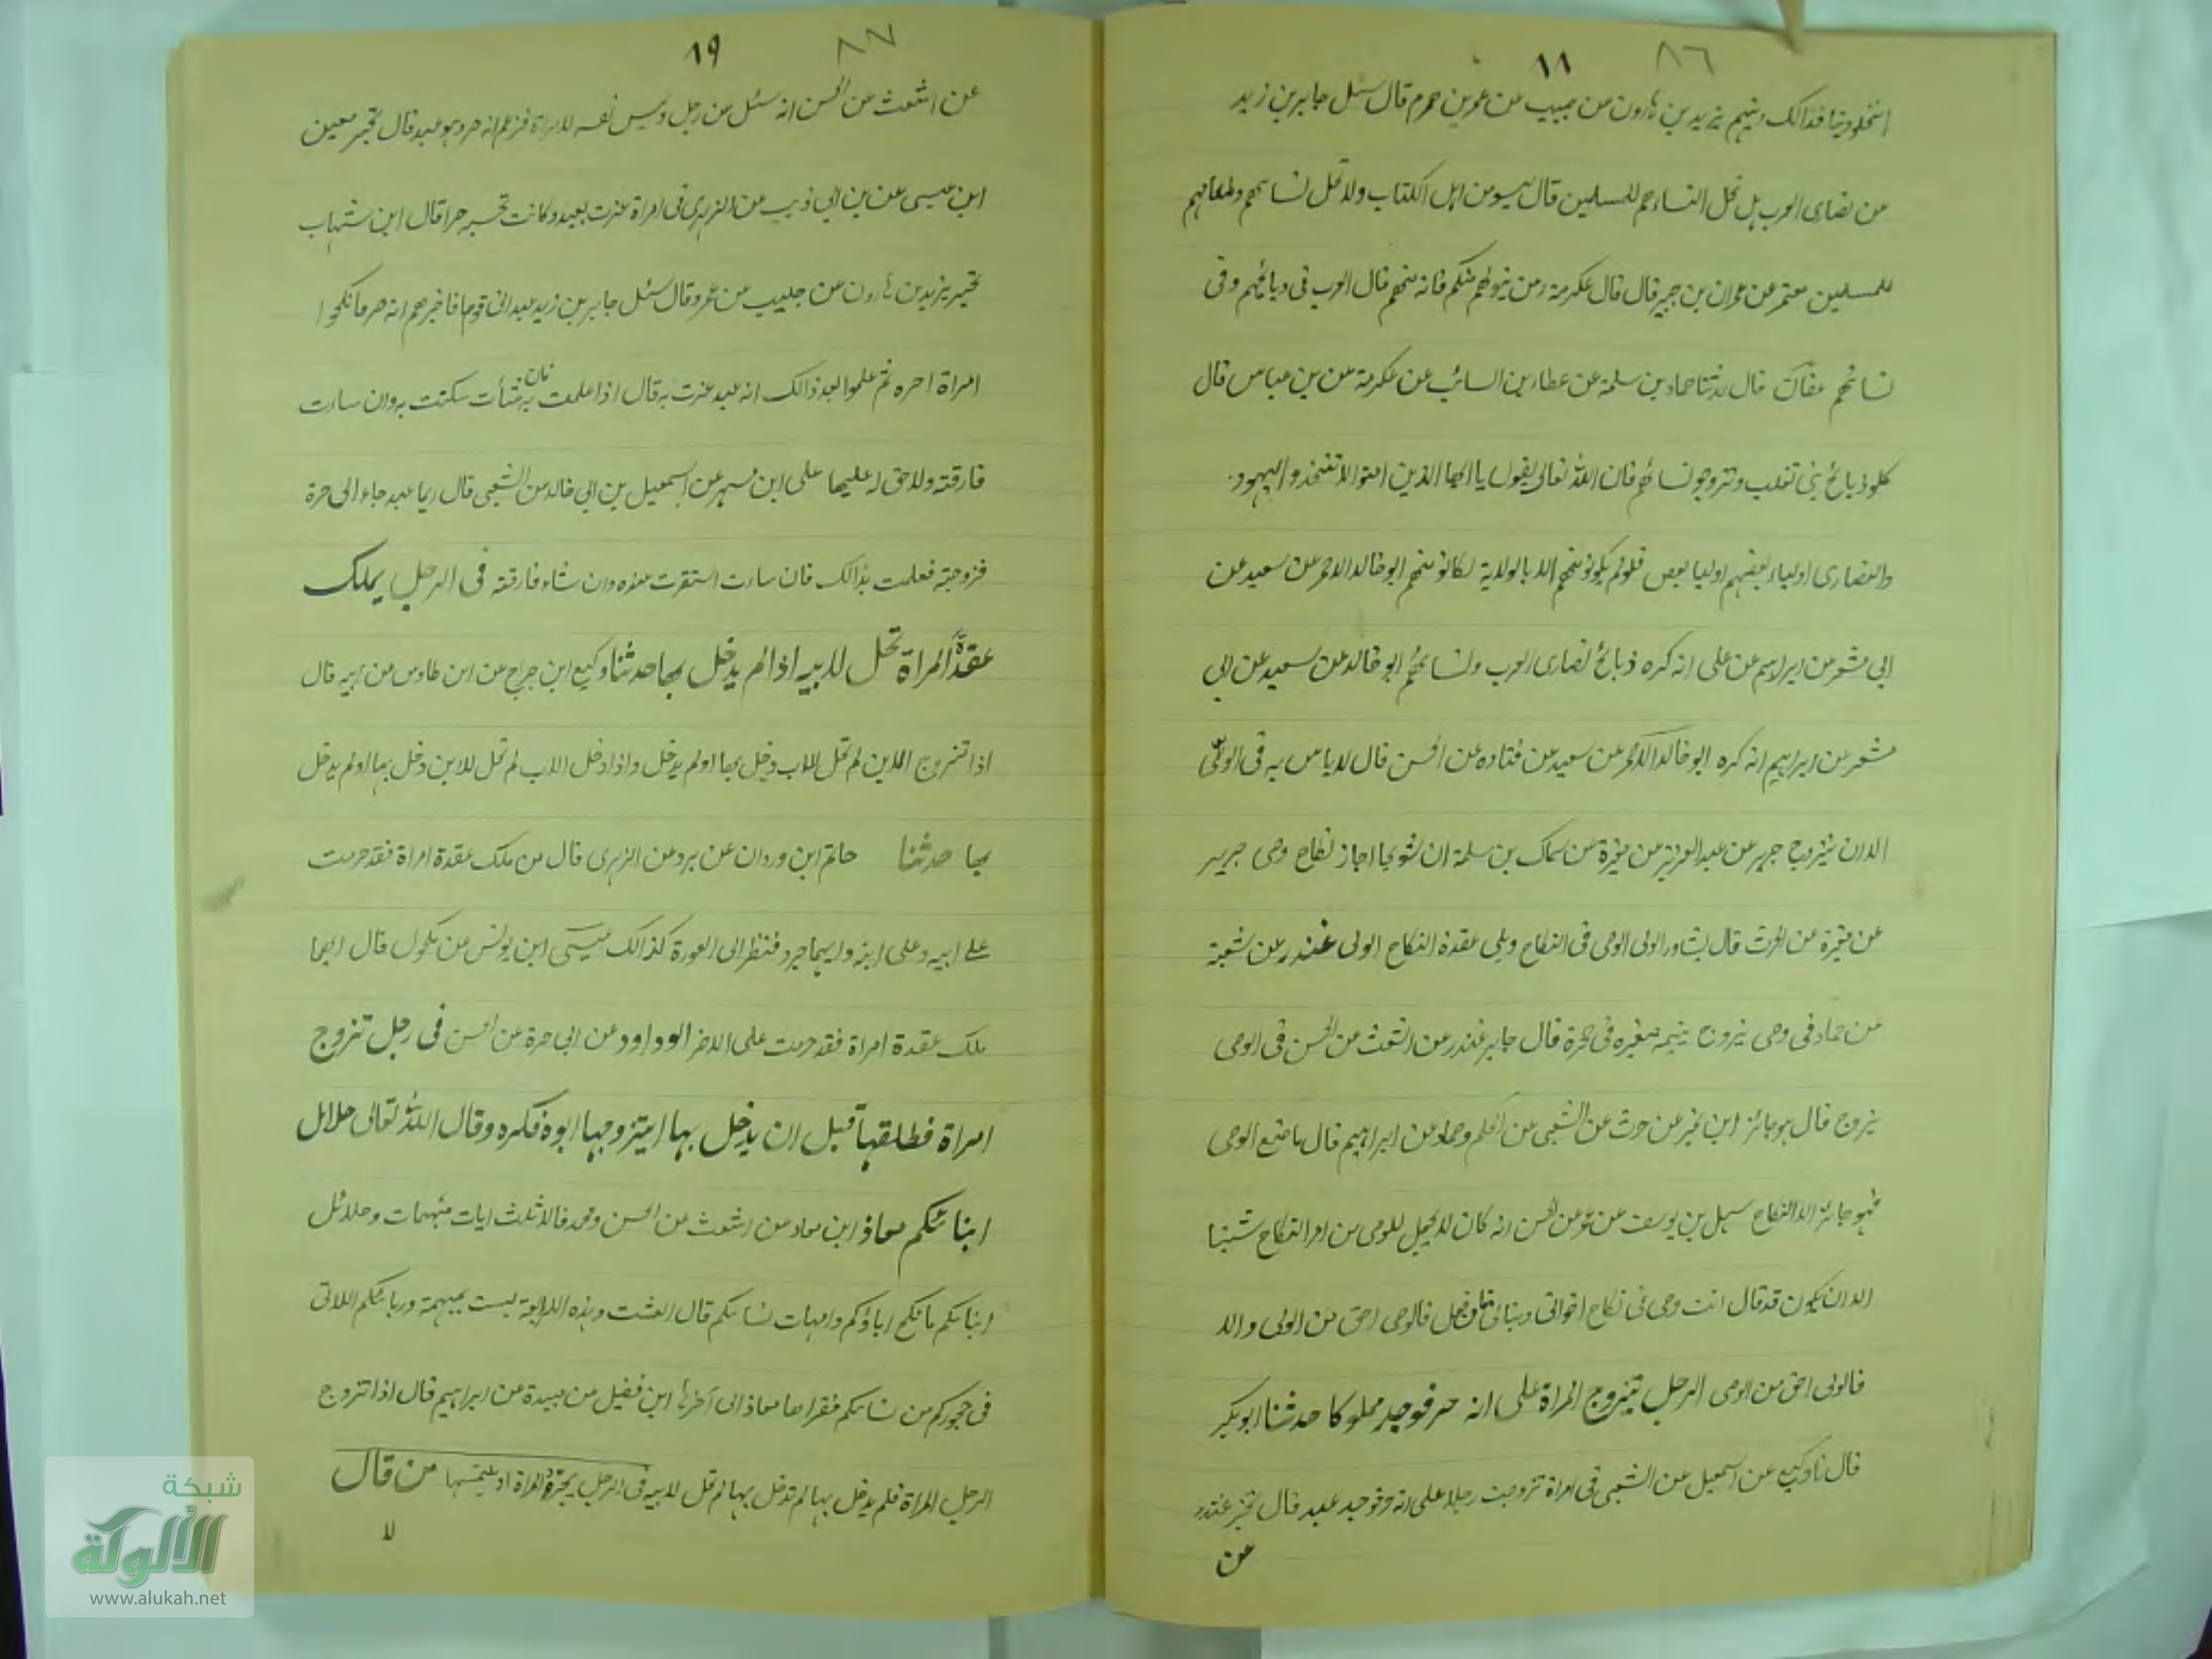 ١٨ ٨٦
انتحلو دينا فذالك دينهم يزيد بن هارون عن حبيب عن عمرو بن هرم قال سئل جابر بن زيد
عن نصارى العرب هل تحل النساءهم للمسلمين قال ليسو من اهل الكتاب ولا تحل نساءهم وطعامهم
للمسلمين معتمر عن عمران بن حدير قال قال عكرمة ومن يتولهم منكم فانه منهم قال العرب في ذبائحهم وفي
نسائهم عفان قال حدثنا حماد بن سلمة عن عطا بن السائب عن عكرمة عن بن عباس قال
كلو ذبائح بني تغلب وتزوجو نسائهم فان الله تعالى يقول يا ايها الذين امنوا لا تتخذو اليهود
والنصارى اولياء بعضهم اوليا بعض فلو لم يكونو منهم الا بالولاية لكانو منهم ابو خالد الاحمر عن سعيد عن
ابي معشر عن ابراهيم عن علي انه كره ذبائح نصارى العرب ونسائهم ابو خالد عن سعيد عن ابي
معشر عن ابراهيم انه كره ابو خالد الاحمر عن سعيد عن قتاده عن الحسن قال لا باس به في الوصي
الان يتزوج جرير عن عبد العزيز عن مغيرة عن سماك بن سلمة ان شريحا اجاز نكاح وصي جرير
عن مغيرة عن الحرث قال يشاور الولى الوصى فى النكاح ويلى عقدة النكاح الولى غندر عن شعبة
عن حماد في وصي يزوج يتيمه صغيره في حجره قال جايز غندر عن اشعث عن الحسن في الوصى
يزوج قال هو جائز ابن نمير عن حرث عن الشعبي عن الحكم وحماد عن ابراهيم قال ما صنع الوصي
فهو جائز الا النكاح سهل بن يوسف عن عمرو عن الحسن انه كان لا يجعل للوصى من امر النكاح شيئا
الا ان يكون قد قال انت وصي في نكاح اخواتى وبناتى فان فعل فالوصي احق من الولى والا
فالولى احق من الوصى الرجل يتزوج المراة على انه حر فوجد مملوكا حدثنا ابو بكر
قال نا وكيع عن اسمعيل عن الشعبي في امراة تزوجت رجلا على انه حر فوجد عبد قال تخير غندر
عن
١٩ ٨٧
عن اشعث عن الحسن انه سئل عن رجل دلس نفسه لامراة فزعم انه حر وهو عبد قال تخير معين
ابن عيسى عن بن ابي ذيب عن الزهري في امراة غرت بعبد وكانت تحسبه حرا قال ابن شهاب
تخير يزيد بن هارون عن حبيب عن عمرو قال سئل جابر بن زيد عبد اتى قوما فاخبرهم انه حر فانكحوا
امراة احره ثم علموا بعد ذالك انه عبد غرت به قال اذا علمت به فان شأت سكتت به وان سارت
فارقته ولا حق له عليها على ابن مسهر عن اسمعيل بن ابي خالد عن الشعبى قال ربما عبد جاء الى حرة
فزوجته فعلمت بذالك فان سارت استقرت عنده وان شاء فارقته في الرجل يملك
عقدة المراة تحل لابيه اذا لم يدخل بها حدثنا وكيع ابن جراح عن ابن طاوس عن ابيه قال
اذا تزوج الابن لم تحل للاب دخل بها او لم يدخل واذا دخل الاب لم تحل للابن دخل بها او لم يدخل
بها حدثنا حاتم ابن وردان عن برد عن الزهري قال من ملك عقدة امراة فقد حرمت
على ابيه وعلى ابنه وايهما جرد فنظر الى العورة كذالك عيسى ابن يونس عن مكحول قال ايهما
ملك عقدة امراة فقد حرمت على الاخر ابو داود عن ابي حرة عن الحسن في رجل تزوج
امراة فطلقها قبل ان يدخل بها ايتزوجها ابوه فكره وقال الله تعالى حلائل
ابنائكم معاذ ابن معاد عن اشعث عن الحسن ومحمد قالا ثلث ايات مبهمات وحلائل
ابنائكم ما نكح اباؤكم وامهات نسائكم قال اشعث وهذه الرابعة ليست بمبهمة وربائبكم اللاتى
في حجوركم من نسائكم فقراها معاذ الى آخرها ابن فضيل عن عبيدة عن ابراهيم قال اذا تزوج
الرجل المراة فلم يدخل بها لم تدخل بها لم تحل لابيه في الرجل يجرد المراة او يلمسها من قال
لا
شبكة
الألوكة
www.alukah.net